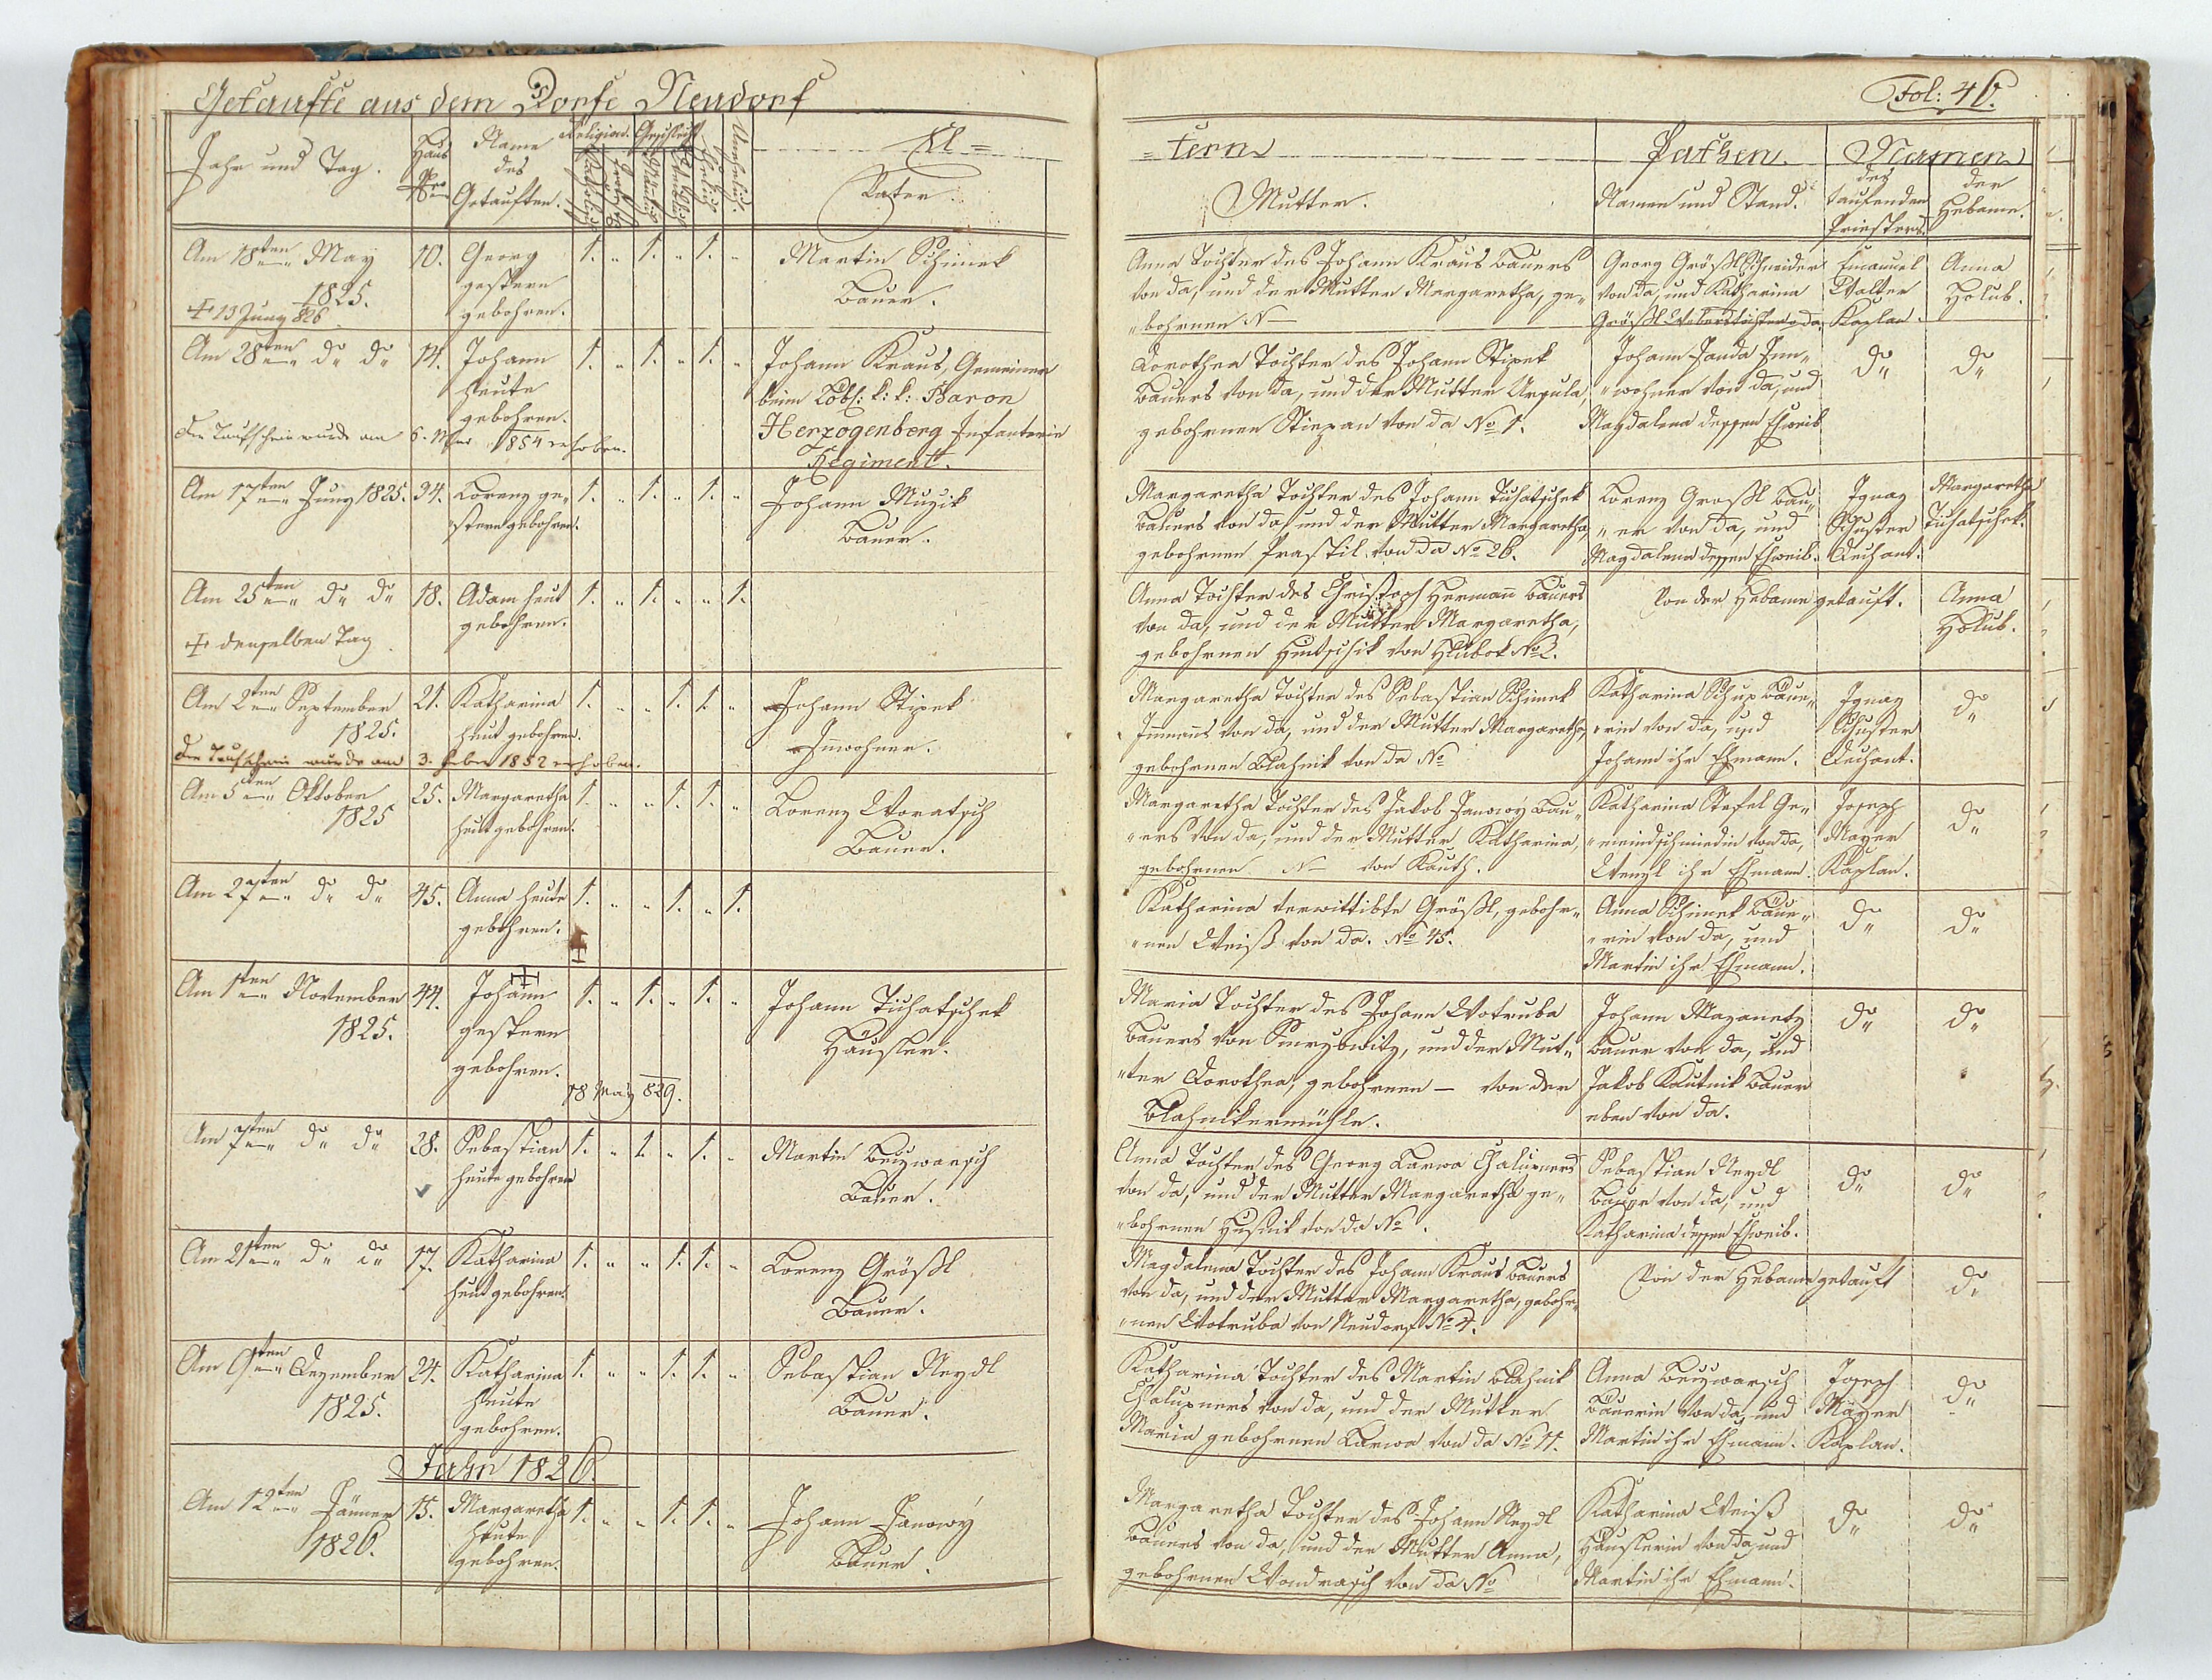 Getaufte aus dem Dorfe Neudorf
Fol: 46.
Jahr und Tag.
Haus Nro
Name des Getauften.
Religion.
Katholisch
Geschlecht
Männlich
Weiblich
Ehelich
Unehelich.
El=
Vater.
=tern
Mutter.
Pathen.
Namen und Stand.
Namen
des taufenden Priesters
der Hebame.
Am 18ten May
1825.
+ 13 Juny 826
10.
Georg
gestern
gebohren.
1. „ 1. „ 1. „
Martin Schimek
Bauer.
Anna Tochter des Johann Kraus Bauers
von da, und der Mutter Margaretha, ge„
„bohrnen N—
Georg Größl Schneider
von da, und Katharina
Größl Weberstochter v. da
Emanuel
Walter
Kaplan.
Anna
Holub.
Am 28ten do do
14.
Johann
heute
gebohren.
1. „ 1. „ 1. „
Der Taufschein wurde am 6. 1854 erhoben.
Johann Kraus, Gemeiner
beim Löbl: k: k: Baron
Herzogenberg Infanterie
Regiment.
Dorothea Tochter des Johann Stipek
Bauers von da, und der Mutter Ursula,
gebohrnen Stiepan von da No 1.
Johann Janda Inn„
„wohner von da, und
Magdalena dessen Eheweib
do
do
Am 17ten Juny 1825.
34.
Lorenz ge„
stern gebohren.
1. „ 1. „ 1. „
Johann Muzik
Bauer.
Margaretha Tochter des Johann Tichatschek
Bauers von da, und der Mutter Margaretha,
gebohrnen Prastil von da No 26.
Lorenz Großl Bau„
„er von da, und
Magdalena dessen Eheweib.
Ignaz
Schuster
Dechant.
Margaretha
Tichatschek.
Am 25ten do do
+ denselben Tag
18.
Adam heut
gebohren.
1. „ 1. „ „ 1.
Anna Tochter des Christoph Hermann Bauers
von da, und der Mutter Margaretha,
gebohrnen von Hlubok No 2.
Von der Hebame getauft.
Anna
Holub.
Am 2ten September
1825.
21.
Katharina
heut gebohren.
1. „ „ 1. 1. „
Der Taufschein wurde am 3. Feber 1852 erhoben.
Johann Stipek
Innwohner.
Margaretha Tochter des Sebastian Schimek
Inmanns von da, und der Mutter Margaretha,
gebohrnen Blahnik von da No
Katharina Schup Bäue„
„rin von da, und
Johann ihr Ehmann.
Ignaz
Schuster
Dechant.
do
Am 5ten Oktober
1825
25.
Margaretha
heut gebohren.
1. „ „ 1. 1. „
Lorenz Woratsch
Bauer.
Margaretha Tochter des Jakob Janowy Bau„
„ers von da, und der Mutter Katharina,
gebohrnen N— von Kauth.
Katharina Stefel Ge„
„meindschmiedin von da,
Wenzl ihr Ehmann.
Joseph
Mayer
Kaplan.
do
Am 27ten do do
45.
Anna heute
gebohren.
1. „ „ 1. „ 1.
Katharina verwittibte Größl, gebohr„
„nen Weiß von da. No 45.
Anna Schimek Bäue„
„rin von da, und
Martin ihr Ehmann.
do
do
Am 1ten November
1825.
44.
Johann
gestern
gebohren.
18 May 829.
1. „ 1. „ 1. „
Johann Tichatschek
Häusler.
Maria Tochter des Johann Wotruba
Bauers von Smrzowitz, und der Mut„
„ter Dorothea, gebohrnen — von der
Blahnikermühle.
Johann Mazanetz
Bauer von da, und
Jakob Kautnik Bauer
eben von da.
do
do
Am 7ten do do
28.
Sebastian
heute gebohren
1. „ 1. „ 1. „
Martin Beizwarsch
Bauer.
Anna Tochter des Georg Karwa Chalupners
von da, und der Mutter Margaretha ge„
„bohrnen Husnik von da No.
Sebastian Reydl
Bauer von da, und
Katharina dessen Eheweib.
do
do
Am 21ten do do
17.
Katharina
heut gebohren.
1. „ „ 1. 1. „
Lorenz Größl
Bauer.
Magdalena Tochter des Johann Kraus Bauers
von da, und der Mutter Margaretha, gebohr„
„nen Wotruba von Neudorf No 4.
Von der Hebame getauft
do
Am 9ten Dezember
1825.
24.
Katharina
heute
gebohren.
1. „ „ 1. 1. „
Sebastian Reydl
Bauer.
Katharina Tochter des Martin Blahnik
Chalupners von da, und der Mutter
Maria gebohrnen Karwa von da No 11.
Anna Beizwarsch
Bäuerin von da, und
Martin ihr Ehmann.
Joseph
Mayer
Kaplan.
do
Jahr 1826.
Am 12ten Jänner
1826.
15.
Margaretha
heute
gebohren.
1. „ „ 1. 1. „
Johann Janowy
Bauer.
Margaretha Tochter des Johann Reydl
Bauers von da, und der Mutter Anna,
gebohrnen Wondrasch von da No
Katharina Weiß
Häuslerin von da, und
Martin ihr Ehmann.
do
do